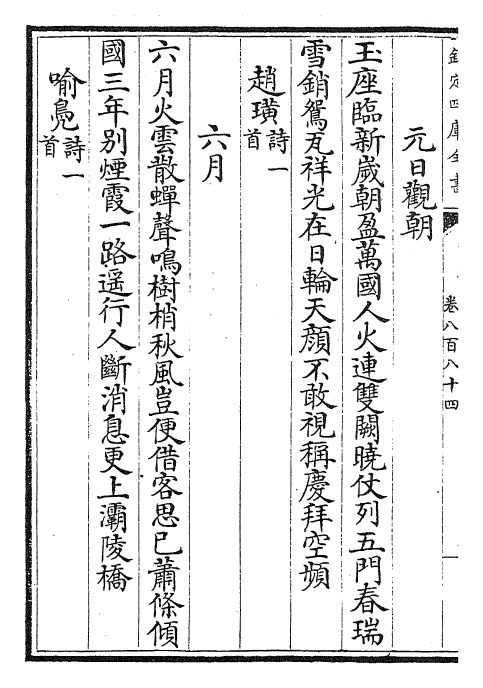 欽定四庫全書
卷八百八十四
元日觀朝
玉座臨新歲朝盈萬國人火連雙闕曉仗列五門春瑞
雪銷鴛瓦祥光在日輪天顔不敢視稱慶拜空頻
趙璜詩一首
六月
六月火雲散蟬聲鳴樹梢秋風豈便借客思已蕭條傾
國三年別煙霞一路遥行人斷消息更上灞陵橋
喻鳧詩一首